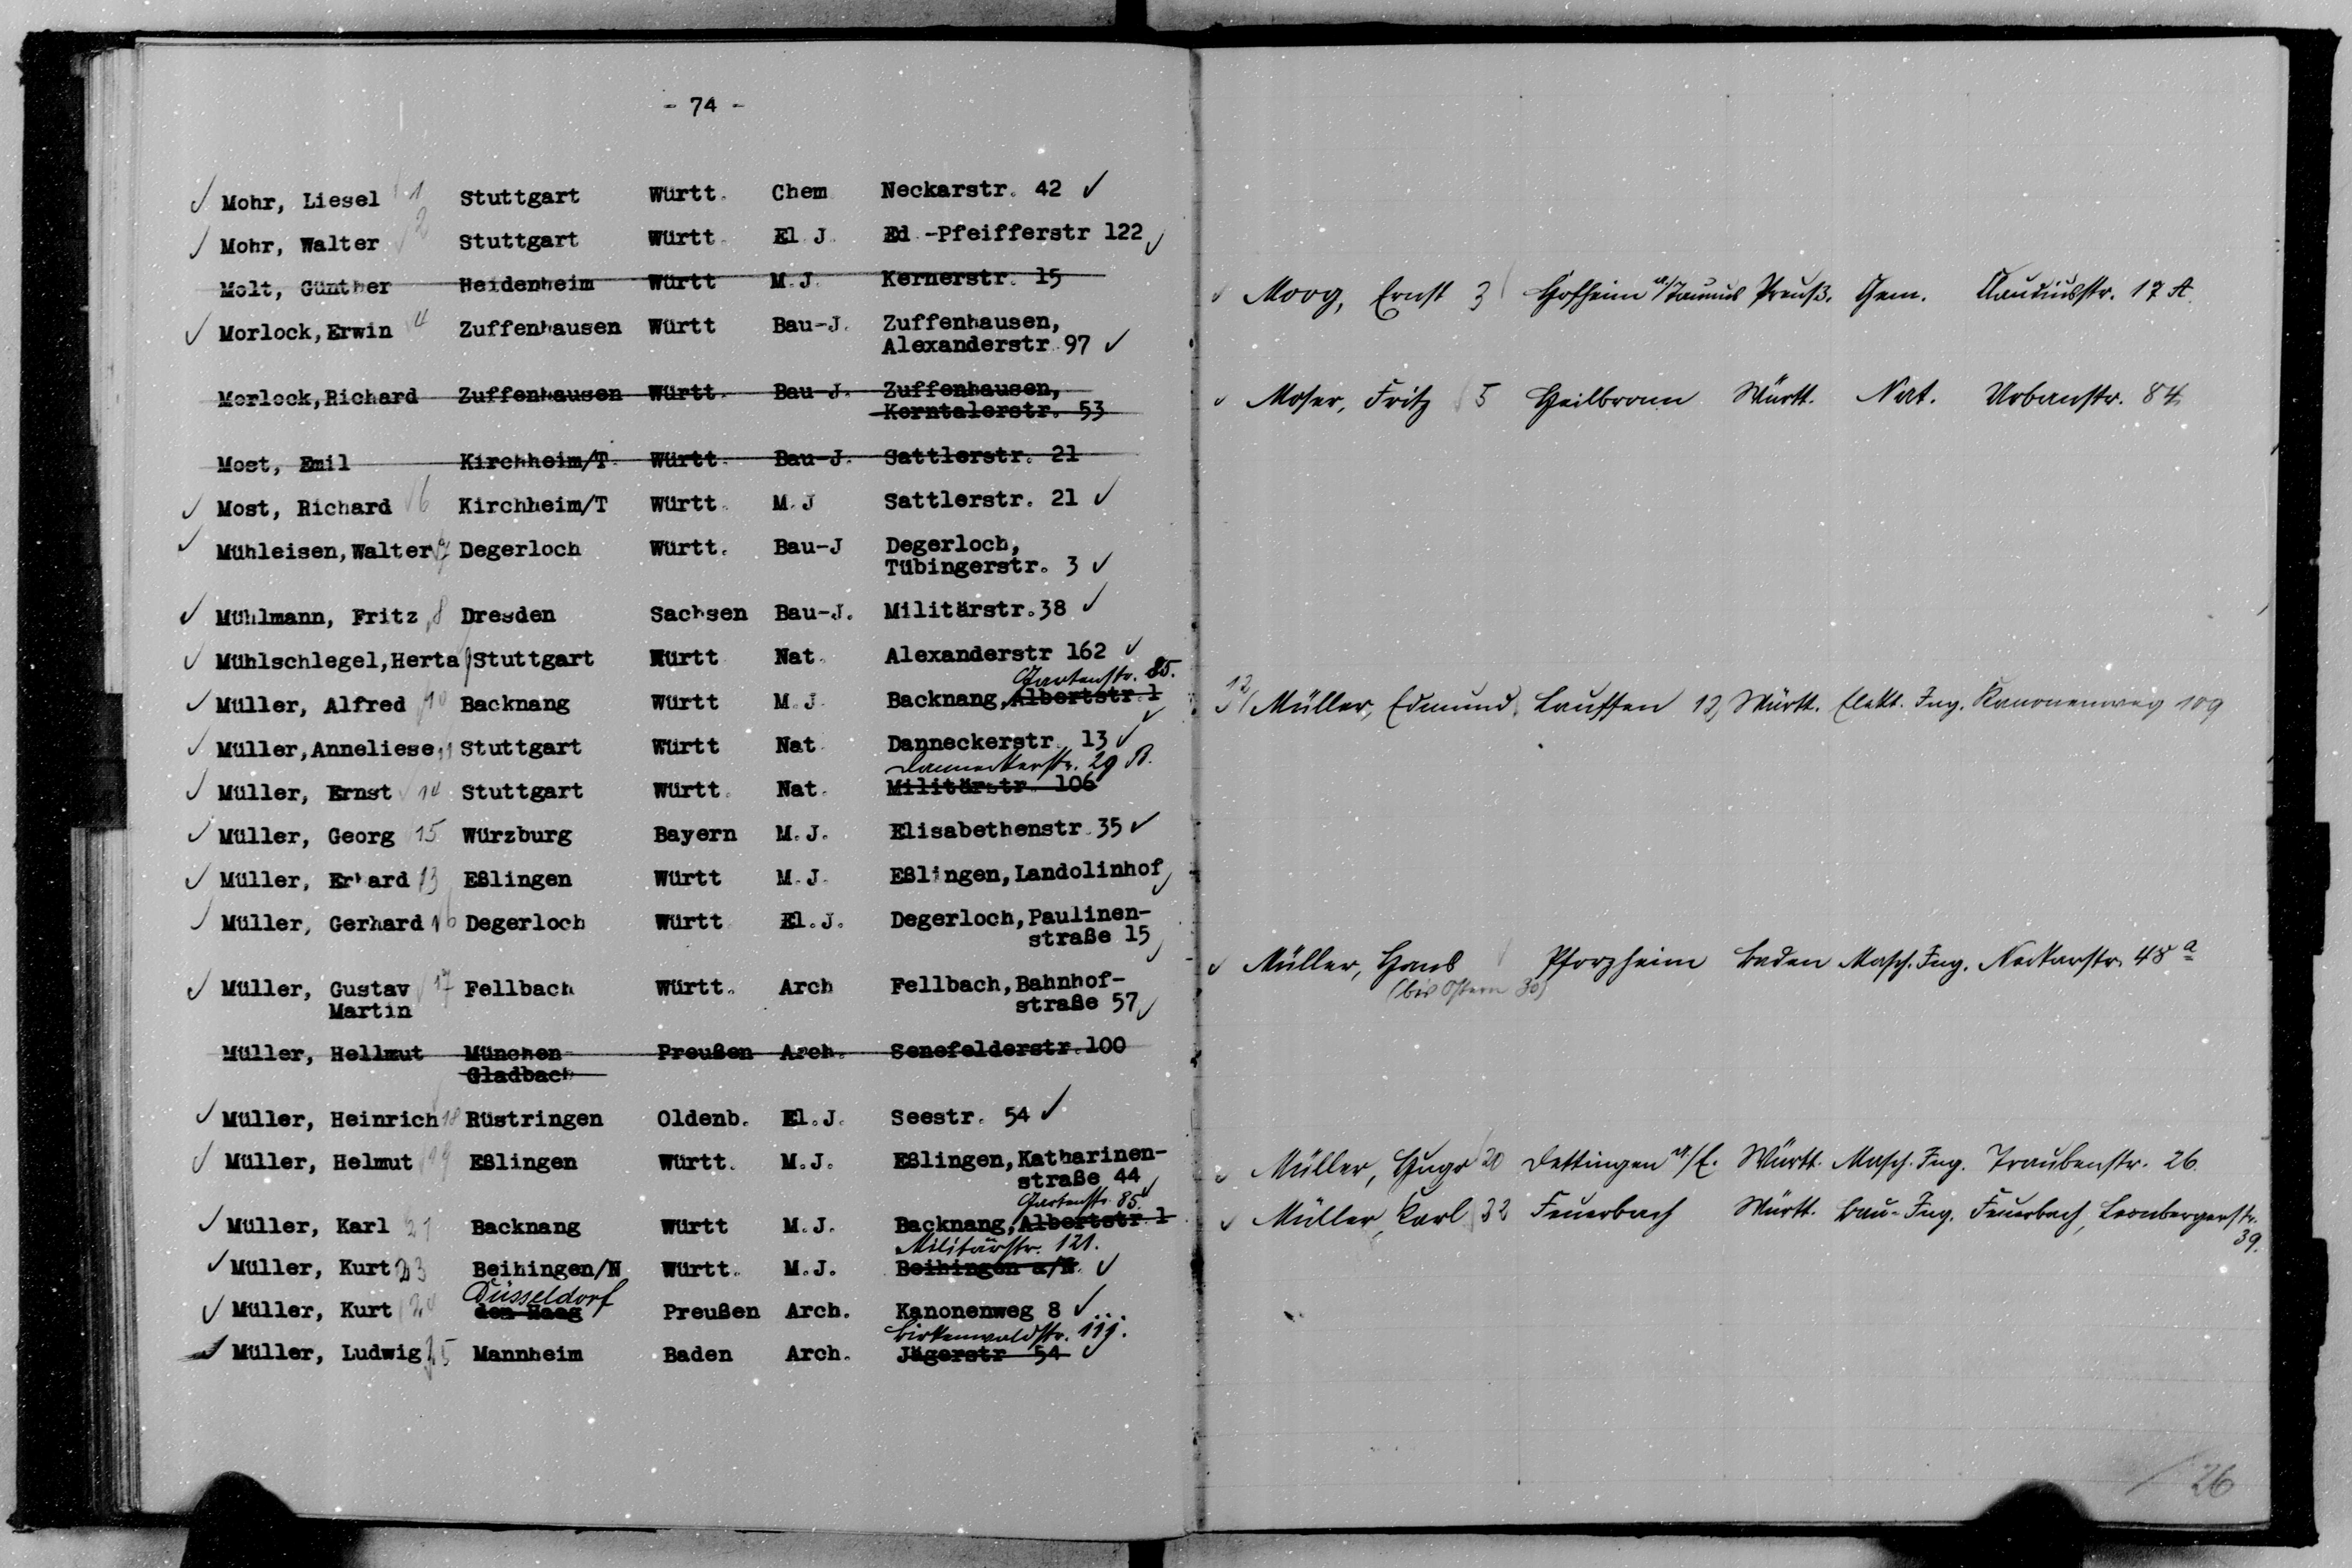 - 74 -
✓ Mohr, Liesel 1 Stuttgart Württ. Chem Neckarstr. 42 ✓
✓ Mohr, Walter 2 Stuttgart Württ. El J. Ed.-Pfeifferstr 122 ✓
Molt, Günther Heidenheim Württ M.J. Kernerstr. 15
✓ Morlock, Erwin 4 Zuffenhausen Württ Bau-J. Zuffenhausen,
Alexanderstr. 97 ✓
Morlock, Richard Zuffenhausen Württ. Bau-J. Zuffenhausen,
Korntalerstr. 53
Most, Emil Kirchheim/T. Württ. Bau-J. Sattlerstr. 21
✓ Most, Richard 6 Kirchheim/T Württ. M.J Sattlerstr. 21 ✓
✓ Mühleisen, Walter 7 Degerloch Württ. Bau-J Degerloch,
Tübingerstr. 3 ✓
✓ Mühlmann, Fritz 8 Dresden Sachsen Bau-J. Militärstr. 38 ✓
✓ Mühlschlegel, Herta 9 Stuttgart Württ Nat. Alexanderstr 162 ✓
Gartenstr. 85.
✓ Müller, Alfred 10 Backnang Württ M.J. Backnang, Albertstr. 1 ✓
✓ Müller, Anneliese 11 Stuttgart Württ Nat. Danneckerstr. 13 ✓
Danneckerstr. 29 B.
✓ Müller, Ernst 14 Stuttgart Württ. Nat. Militärstr. 106
✓ Müller, Georg 15 Würzburg Bayern M.J. Elisabethenstr. 35 ✓
✓ Müller, Erhard 13 Eßlingen Württ M.J. Eßlingen, Landolinhof ✓
✓ Müller, Gerhard 16 Degerloch Württ El.J. Degerloch, Paulinen-
straße 15 ✓
✓ Müller, Gustav 17 Fellbach Württ. Arch Fellbach, Bahnhof-
Martin straße 57 ✓
Müller, Hellmut München Preußen Arch. Senefelderstr. 100
Gladbach
✓ Müller, Heinrich 18 Rüstringen Oldenb. El.J. Seestr. 54 ✓
✓ Müller, Helmut 19 Eßlingen Württ. M.J. Eßlingen, Katharinen-
straße 44 ✓
Gartenstr. 85.
✓ Müller, Karl 21 Backnang Württ M.J. Backnang, Albertstr. 1
Militärstr. 121.
✓ Müller, Kurt 23 Beihingen/N Württ. M.J. Beihingen a/N. ✓
Düsseldorf
✓ Müller, Kurt 24 den Haag Preußen Arch. Kanonenweg 8 ✓
Birkenwaldstr.
✓ Müller, Ludwig 25 Mannheim Baden Arch. Jägerstr 54 ✓
✓ Moog, Ernst 3 Hofheim a/Taunus Preuß. Chem. Claudiusstr. 17 A.
✓ Moser, Fritz 5 Heilbronn Württ. Nat. Urbanstr. 84
12
✓ Müller, Edmund, Lauffen 12, Württ. Elekt. Ing. Kanonenweg 109
✓ Müller, Hans Pforzheim Baden Masch. Ing. Neckarstr. 48 a
(bis Ostern 30)
✓ Müller, Hugo 20 Dettingen a/E. Württ. Masch. Ing. Traubenstr. 26.
✓ Müller, Karl 22 Feuerbach Württ. Bau-Ing. Feuerbach, Leonbergerstr.
39.
26